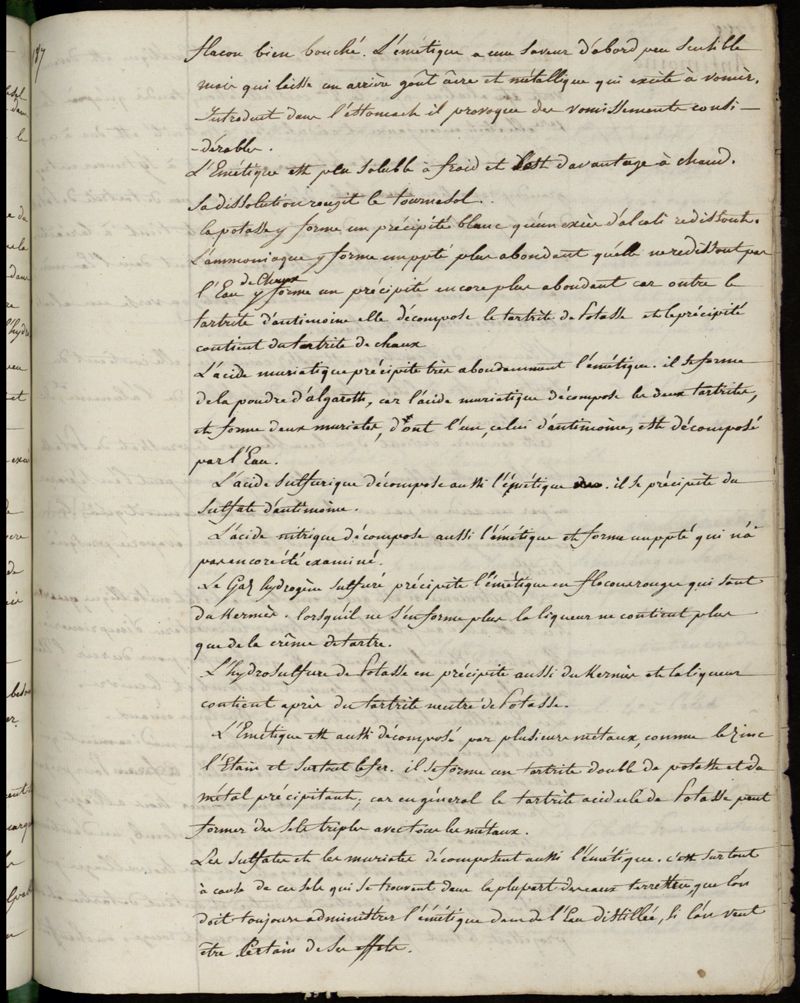 187
flacon bien bouché. L'émétique a une saveur d'abord peu sensible
mais qui laisse un arrière goût âcre et métallique qui excite à vomir.
Introduit dans l'estomach il provoque des vomissements consi-
-dérables.
L'Emétique est peu soluble à froid et l'est d'avantage à chaud.
Sa dissolution rougit le tournesol.
la potasse y forme un précipité blanc qu'un excès d'alcali redissout.
L'ammoniaque y forme un ppté plus abondant qu'elle ne redissout pas
l'Eau de Chaux y forme un précipité encore plus abondant car outre le
tartrite d'antimoine elle décompose le tartrite de Potasse et le précipité
contient du tartrite de chaux
L'acide muriatique précipite très abondamment l'émétique. il se forme
de la poudre d'algaroth, car l'acide muriatique décompose les deux tartrites,
et forme deux muriates, dont l'un, celui d'antimoine, est décomposé
par l'Eau.
L'acide sulfurique décompose aussi l'émétique. il se précipite du
Sulfate d'antimoine.
L'acide nitrique décompose aussi l'émétique et forme un ppté qui n'a
pas encore été examiné.
Le Gaz hydrogène sulfuré précipite l'émétique en flocons rouges qui sont
du Kermès. lorsqu'il ne s'en forme plus la liqueur ne contient plus
que de la crême de tartre.
L'hydrosulfure de Potasse en précipite aussi du Kermès et la liqueur
contient après du tartrite neutre de Potasse.
L'Emétique est aussi décomposé par plusieurs métaux, comme le Zinc
l'Etain et surtout le fer. il se forme un tartrite double de potasse et du
métal précipitant; car en général le tartrite acidule de Potasse peut
former des sels triples avec tous les métaux.
Les Sulfates et les muriates décomposent aussi l'émétique. c'est surtout
à cause de ces sels qui se trouvent dans la plupart des eaux terrestres, que l'on
doit toujours administrer l'émétique dans de l'Eau distillée, si l'on veut
être certain de ses effets.